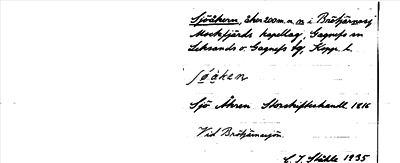 Sjöåkern, åker 200 m. n. om i Brötjärnasj
Mockfjärds kapellag, Gagnefs sn
Leksands o. Gagnefs tg, Kopp. l.
sǿåken
Sjö Åkren Storskifteshandl. 1816
Vid Brötjärnasjön.
C. I. Ståhle 1935